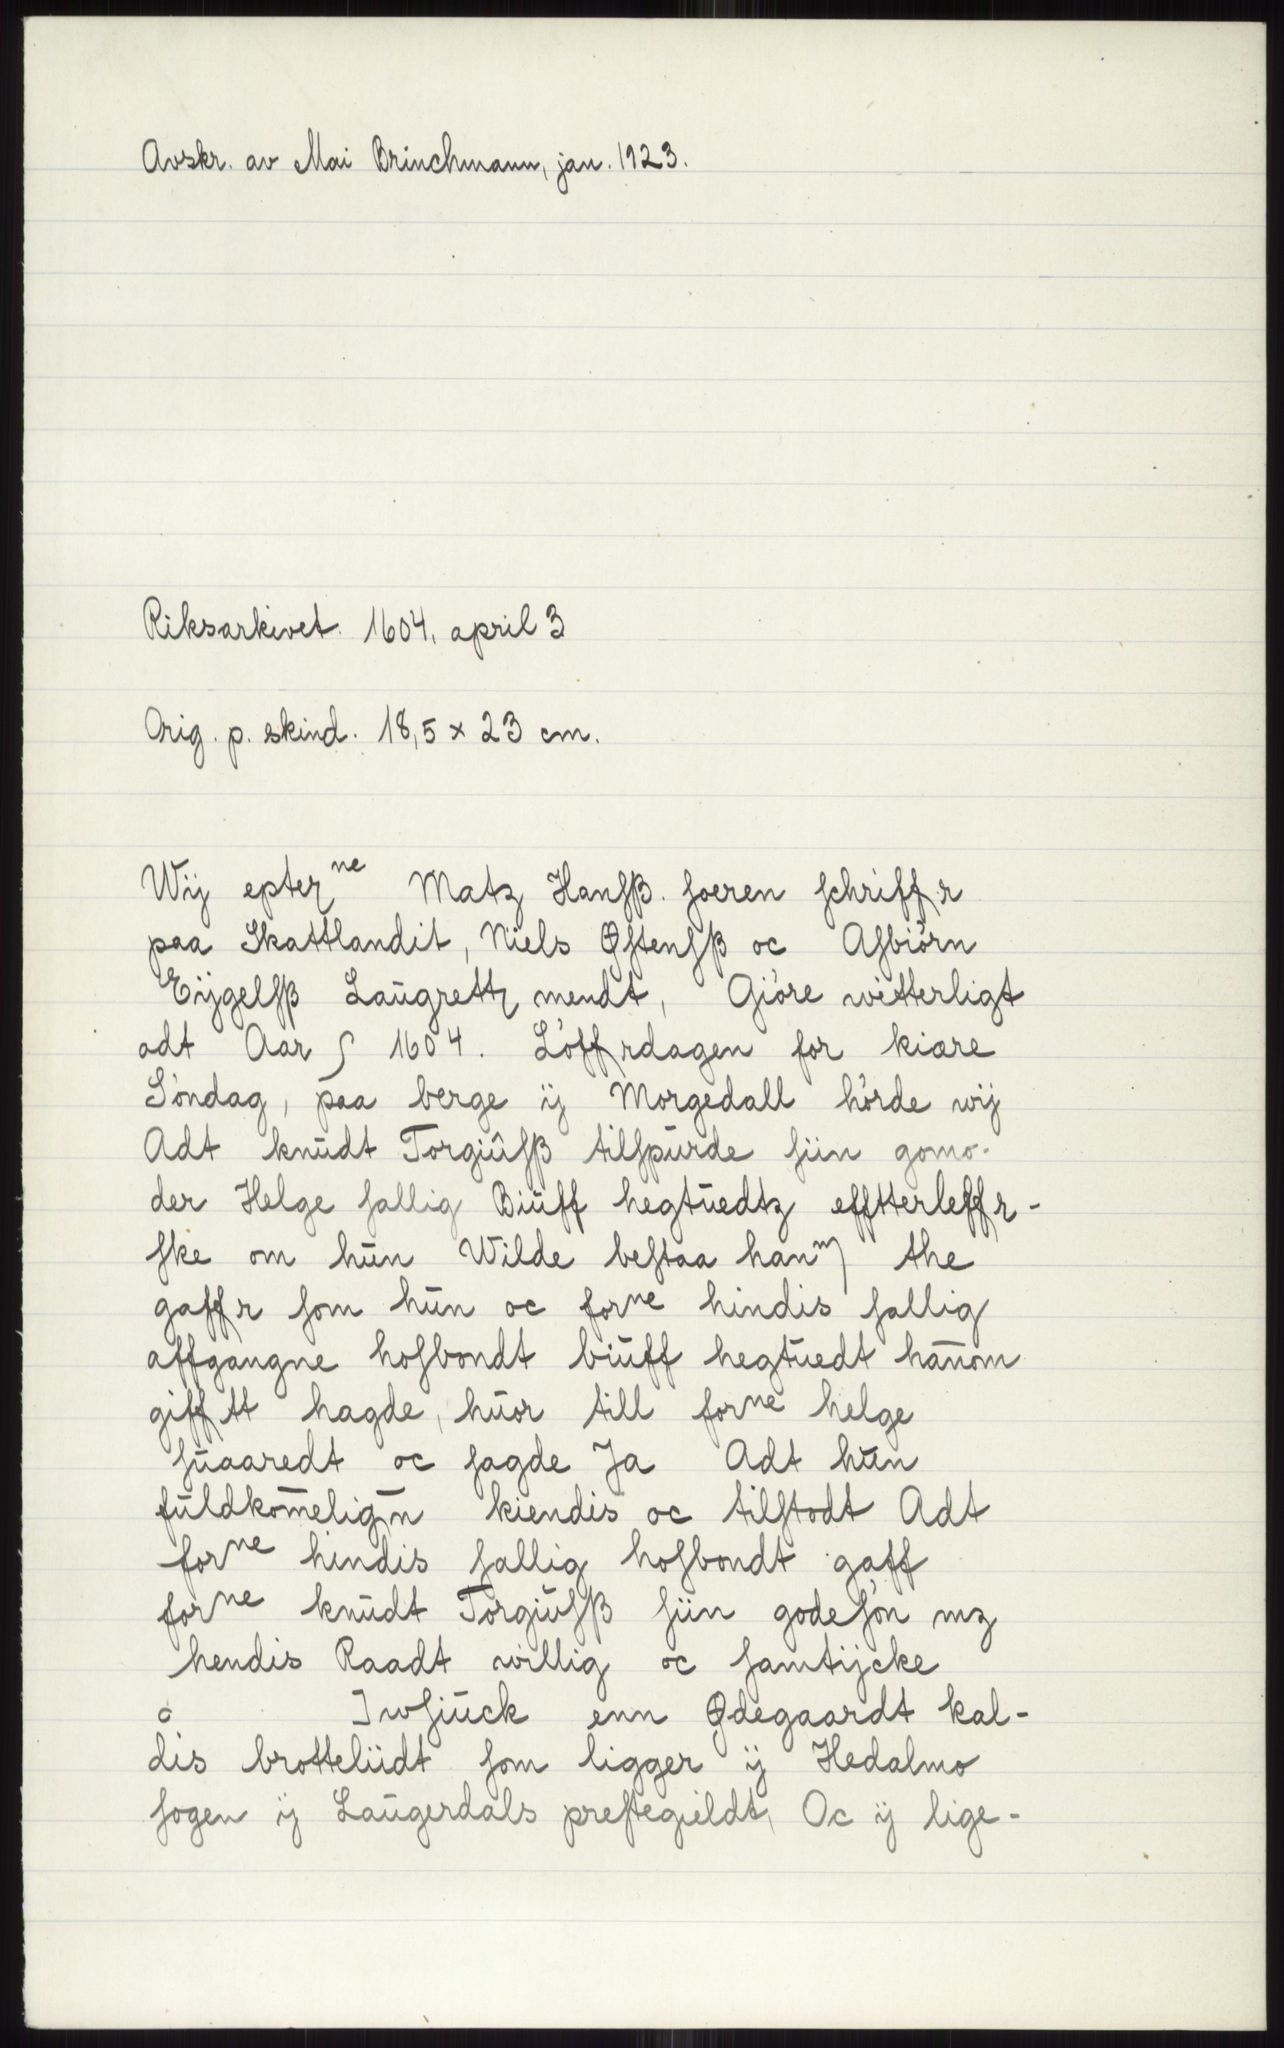 Avskr. av Mai Brinchmann, jan. 1923.
Riksarkivet. 1604, april 3
Orig. p. skind. 18,5 × 23 cm.
Wij epterne Matz Hanſß. ſoeren ſchriffr
paa Skattlandit, Niels Øſtenſß oc Aſbiörn
Eijgelſß Laŭgrettz mendt, Giöre witterligt
adt Aar ʃ 1604. Löffrdagen for kiære
Söndag, paa berge ij Morgedall hörde wij
Adt knŭdt Torgiŭlſß tilſpŭrde ſiin gomo-
der Helge ſallig Biŭff hegtŭedtz efftterleffr-
ſke om hŭn Wilde beſtaa hanm the
gaffr ſom hŭn oc forne hindis ſallig
affgangne hoſbondt biŭff hegtŭedt han̄om
gifftt hagde, hŭor till forne helge
ſŭaaredt oc ſagde Ja Adt hŭn
fŭldkom̄elign̄ kiendis oc tilſtodt Adt
forne hindis ſallig hoſbondt gaff
forne knŭdt Torgiŭlſß ſiin godeſön mz
hendis Raadt willig oc ſamtijcke
o Jwſiŭck enn Ødegaardt kal-
dis brotteliidt ſom ligger ij Hedalmo
ſogen ij Laŭgerdals preſtegieldt, Oc ij lige-